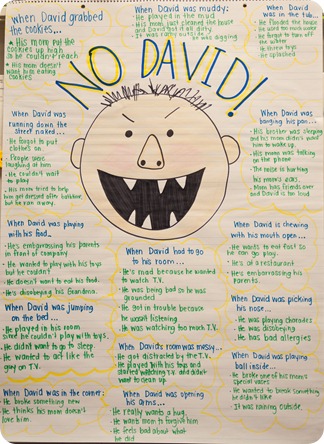 When David grabbed
the cookies...
His mom put the
cookies up high
so he couldn't reach
His mom doesn't
want him eating
cookies
When David was muddy:
He played in the mud
His mom just cleaned the house
and David got it dirty
It was rainy outside
he was digging
When David
was in the tub...
He flooded the house
He used too much water
He forgot to turn off
the water
He threw toys
He splashed
NO DAVID!
When David was
running down the
street naked...
He forgot to put
clothes on.
People were
laughing at him
He couldn't wait
to play
His mom tried to help
him get dressed after bathtime,
but he ran away.
When David was
banging his pan...
His brother was sleeping
and his mom didn't want
him to wake up.
His mom was talking
on the phone
The noise is hurting
his mom's ears.
Mom has friends over
and David is too loud
When David was playing
with his food...
He's embarrassing his parents
in front of company
He wanted to play with his toys
but he couldn't
He doesn't want to eat his food.
He's disobeying his Grandma.
When David had to
go to his room...
He's mad because he
wanted to
watch T.V.
He was being bad
so he was
grounded
He got in trouble because
he wasn't listening
He was watching too much T.V.
When David is chewing
with his mouth open...
He wants to eat fast so
he can go play.
He's at a restaurant
He's embarrassing his
parents.
When David was jumping
on the bed...
He played in his room
since he couldn't play with toys.
He didn't want to go to sleep.
He wanted to act like the
guy on T.V.
When David was picking
his nose...
He was playing charades
He was disobeying
He has bad allergies
When David's room was messy...
He got distracted by the T.V.
He played with his toys and
started watching T.V. and didn't
want to clean up.
When David was playing
ball inside...
He broke one of his mom's
special vases
He wanted to break something
he didn't like
It was raining outside.
When David was in the corner:
He broke something new
He thinks his mom doesn't
love him.
When David was opening
his arms...
He really wants a hug.
He wants mom to forgive him
He feels bad about what
he did